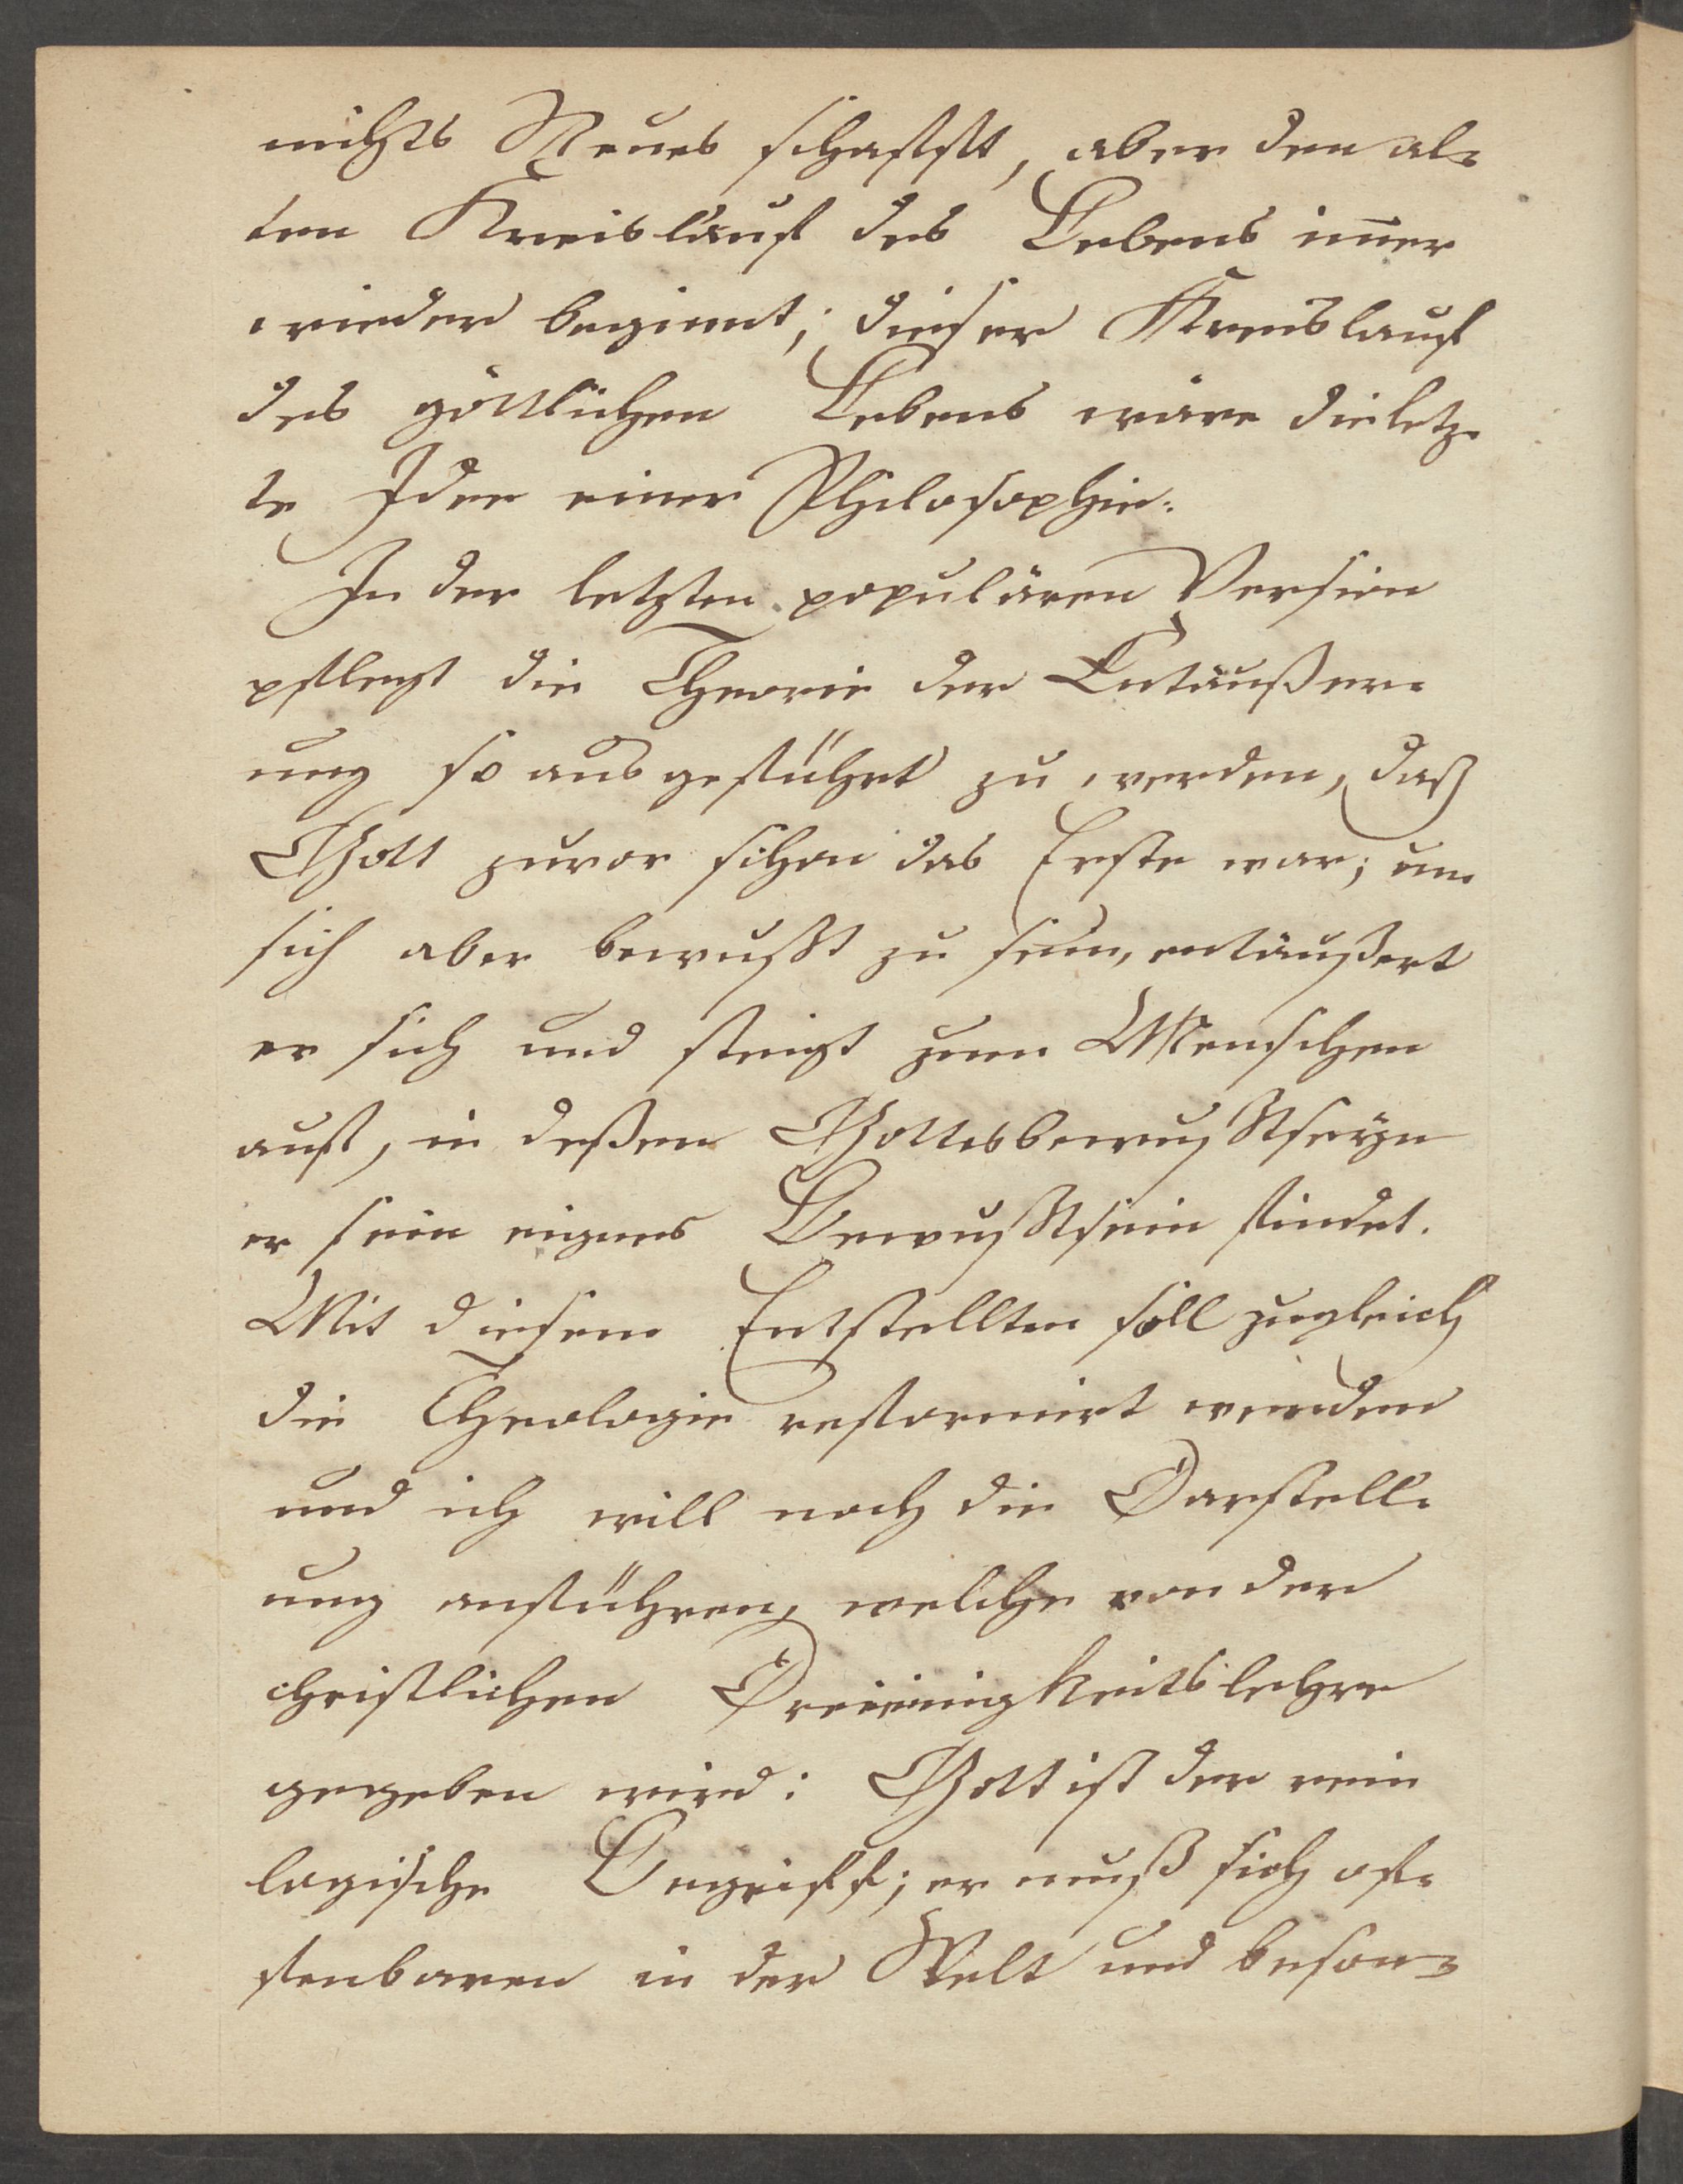 nichts Neues schafft, aber den al-
ten Kreislauf des Lebens im̅er
wieder beginnt; dieser Kreislauf
des göttlichen Lebens wäre die letz-
te Idee einer Philosophie.
In der letzten populären Version
pflegt die Theorie der Entäußer-
ung so ausgeführt zu werden, daß
Gott zuvor schon das Erste war; um
sich aber bewußt zu sein, entäußert
er sich und steigt zum Menschen
auf, in deßen Gottesbewußtseyn
er sein eignes Bewußtsein findet.
Mit diesem Entstellten soll zugleich
die Theologie reformirt werden
und ich will noch die Darstell-
ung anführen, welche von der
christlichen Dreieinigkeitslehre
gegeben wird: Gott ist der rein
logische Begriff; er muß sich of-
fenbaren in der Welt und beson-